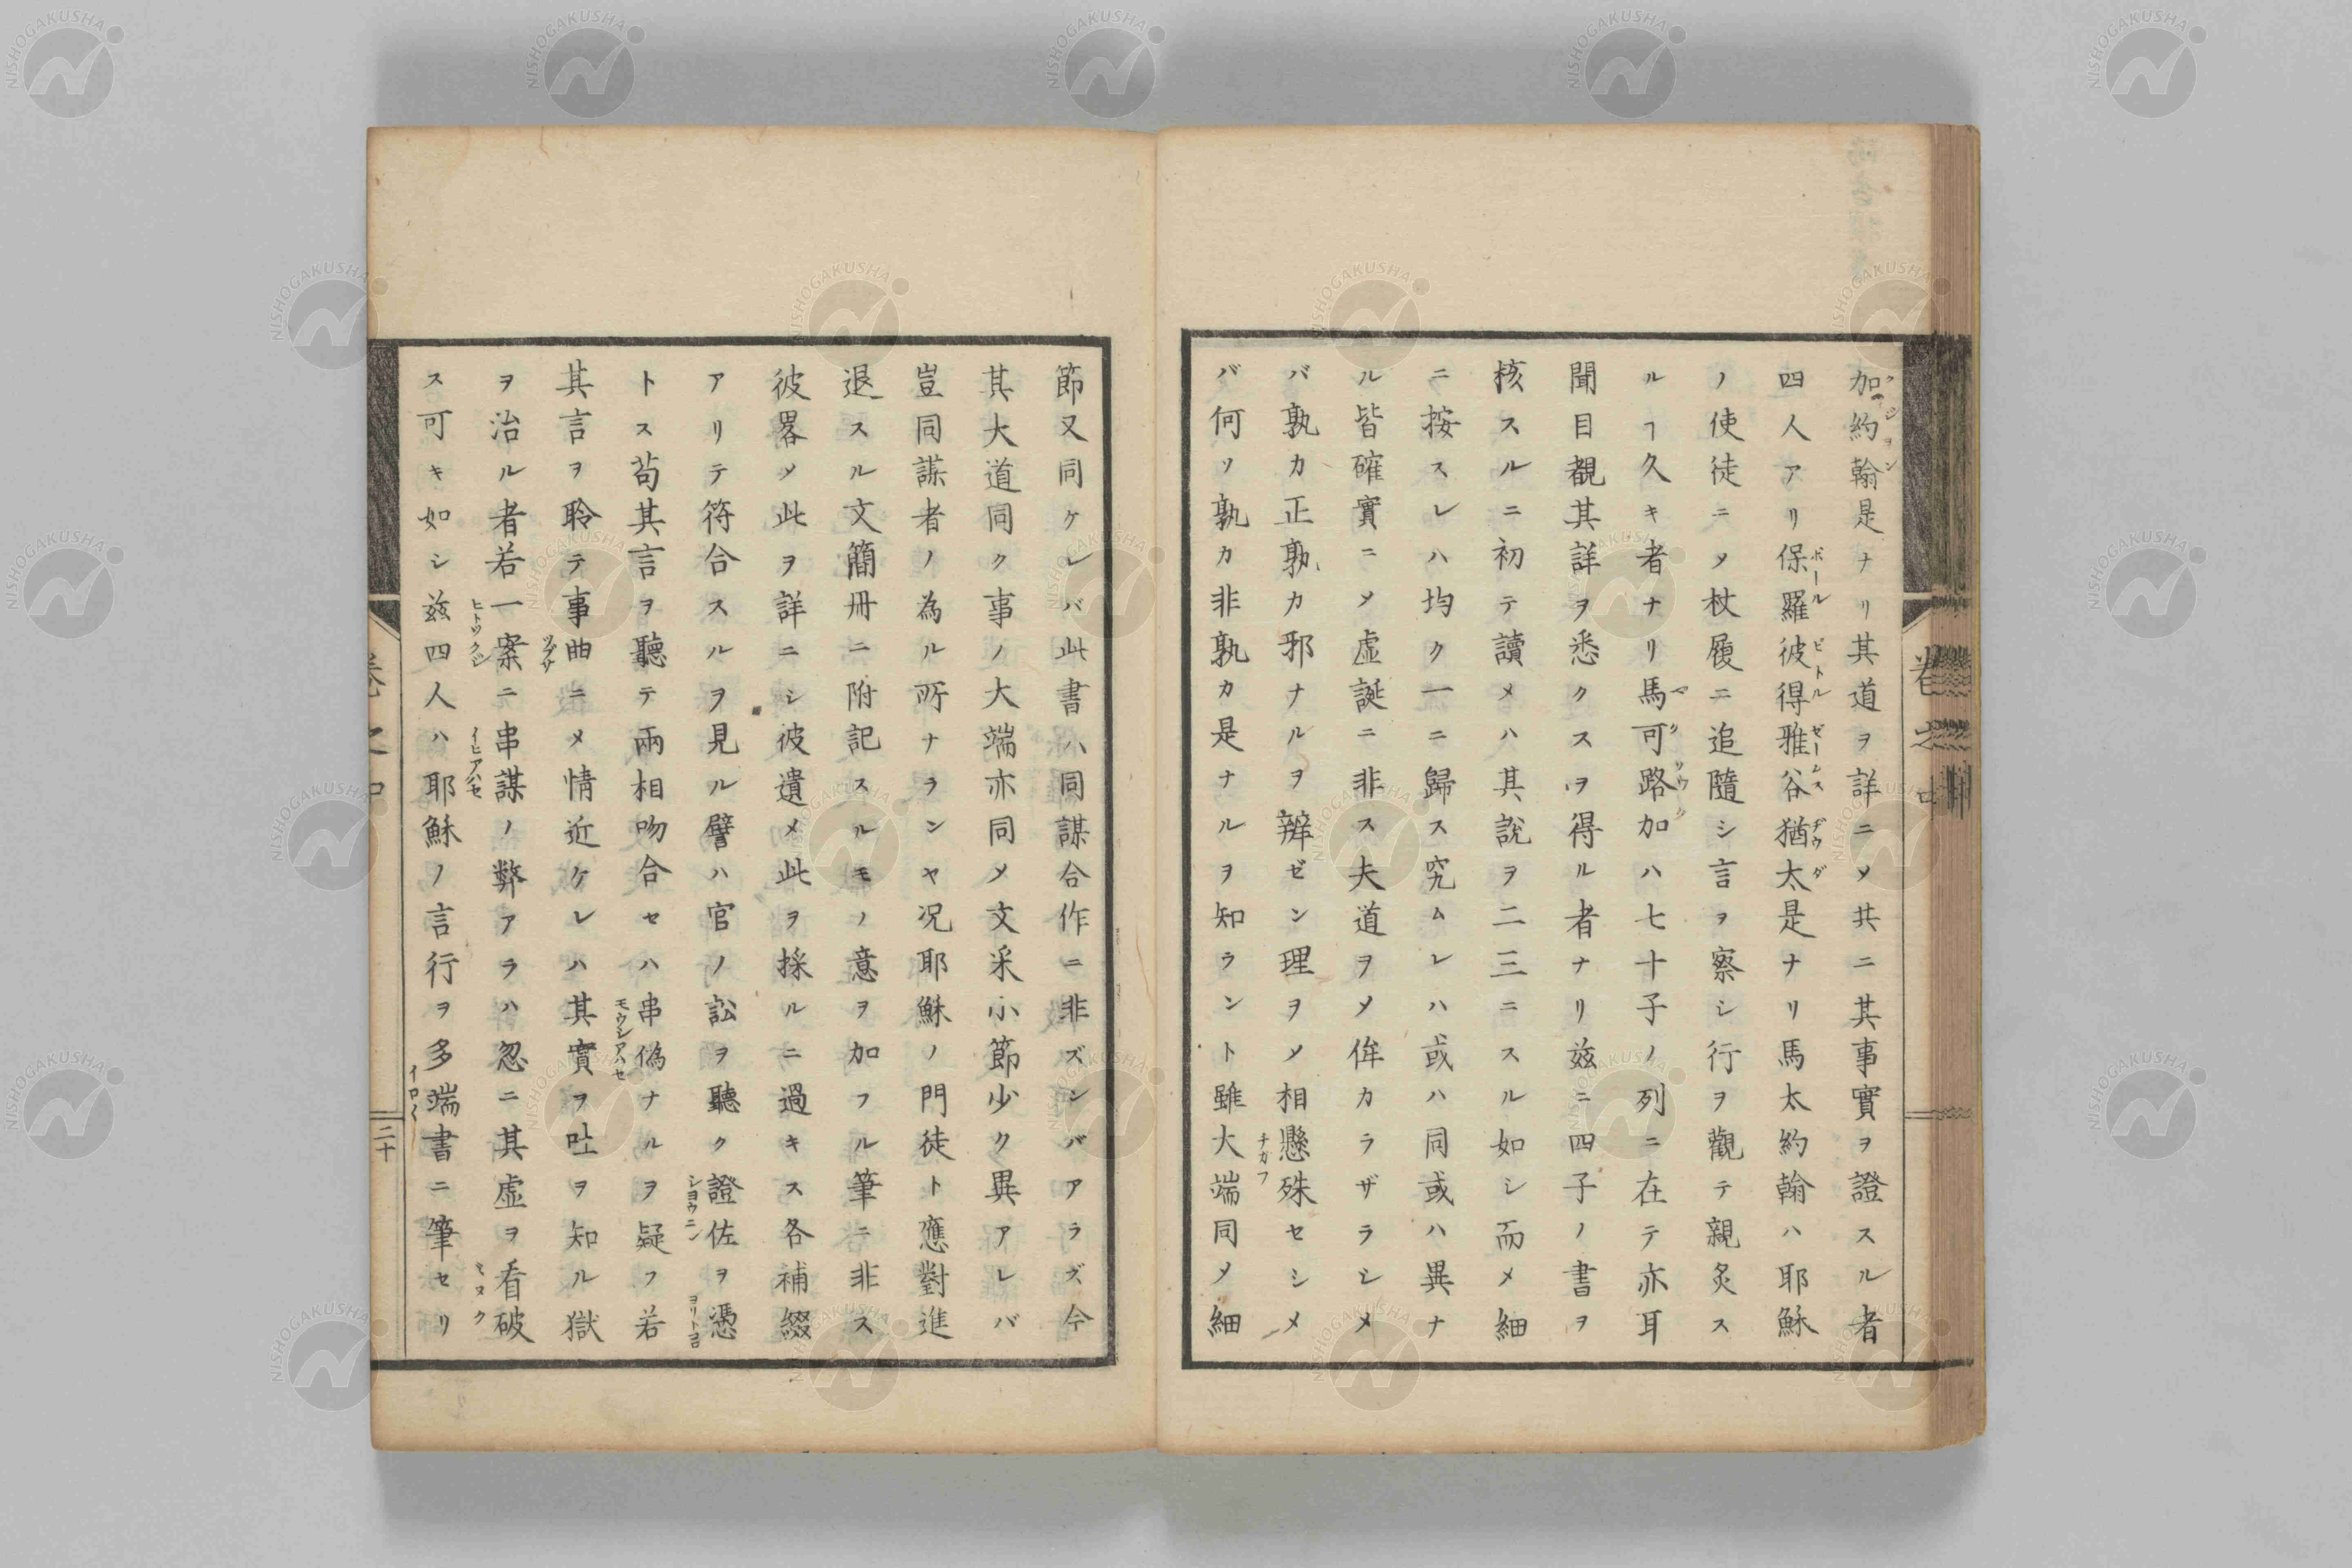 加約翰是ナリ其道ヲ詳ニメ共ニ其事實ヲ證スル者
四人アリ保羅彼得雅谷猶太是ナリ馬太約翰ハ耶穌
ノ使徒ニメ杖履ニ追隨シ言ヲ察シ行ヲ觀テ親炙ス
ルヿ久キ者ナリ馬可路加ハ七十子ノ列ニ在テ亦耳
聞目覩其詳ヲ悉クスヲ得ル者ナリ茲ニ四子ノ書ヲ
核スルニ初テ讀メハ其說ヲ二三ニスル如シ而メ細
ニ按スレハ均ク一ニ歸ス究ムレハ或ハ同或ハ異ナ
ル皆確實ニメ虛誕ニ非ス夫道ヲメ侔カラザラシメ
バ孰カ正孰カ邪ナルヲ辨ゼン理ヲメ相懸殊セシメ
バ何ソ孰カ非孰カ是ナルヲ知ラント雖大端同メ細
節又同ケレバ此書ハ同謀合作ニ非ズンバアラズ今
其大道同ク事ノ大端亦同メ文采小節少ク異アレバ
豈同謀者ノ為ル所ナランヤ況耶穌ノ門徒ト應對進
退スル文簡冊ニ附記スルモノ意ヲ加フル筆ニ非ス
彼畧メ此ヲ詳ニシ彼遺メ此ヲ採ルニ過キス各補綴
アリテ符合スルヲ見ル譬ハ官ノ訟ヲ聽ク證佐ヲ憑
トス苟其言ヲ聽テ兩相吻合セハ串偽ナルヲ疑フ若
其言ヲ聆テ事曲ニメ情近ケレハ其實ヲ吐ヲ知ル獄
ヲ治ル者若一案ニ串謀ノ弊アラハ忽ニ其虛ヲ看破
ス可キ如シ茲四人ハ耶穌ノ言行ヲ多端書ニ筆セリ
二十
NISHOGAKUSHA